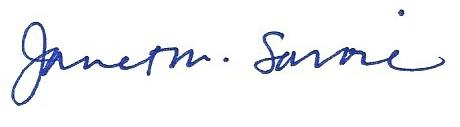 Janet M. Savoie